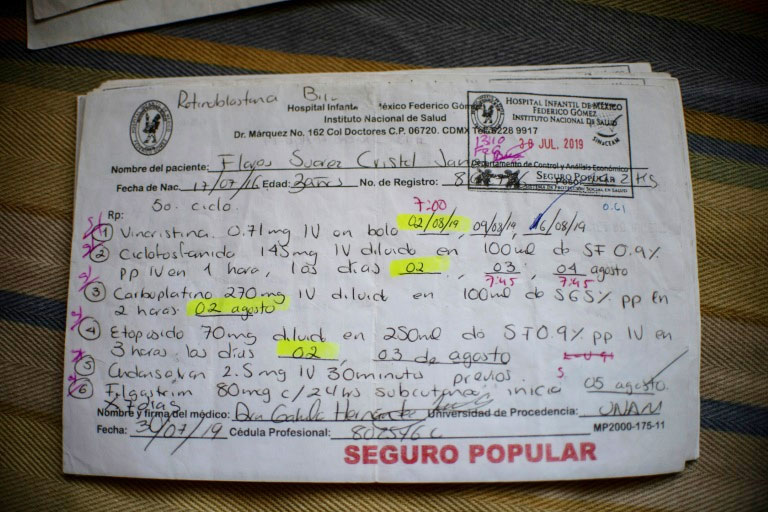 Retinoblastoma Bil.
Hospital Infantil México Federico Gómez
Instituto Nacional de Salud
Dr. Márquez No. 162 Col Doctores C.P. 06720. CDMX Tel. 5228 9917
HOSPITAL INFANTIL DE MÉXICO
FEDERICO GÓMEZ
INSTITUTO NACIONAL DE SALUD
JUL. 2019
Departamento de Control y Análisis Económico
SEGURO POPULAR
SISTEMA DE PROTECCIÓN SOCIAL EN SALUD
Nombre del paciente: Flores Suarez Cristel
Fecha de Nac. 17/07/16 Edad: 3años No. de Registro:
5o. ciclo. 7:00 0.61
Rp:
1 Vincristina 0.71mg IV en bolo 02/08/19, 09/08/19, 16/08/19
2 Ciclofosfamida 145mg IV diluido en 100ml de SF 0.9%
pp IV en 1 hora, los días 02, 03, 04 agosto
7:45 7:45
3 Carboplatino 270mg IV diluido en 100ml de SG5% pp en
2 horas 02 agosto
4 Etoposido 70mg diluid en 250ml de SF0.9% pp IV en
3 horas los días 02 03 de agosto
5 Ondansetron 2.5mg IV 30minutos previos
6 Filgastrim 80mg c/24hrs subcutanea inicia 05 agosto
x 7 días
Nombre y firma del médico: Dra Universidad de Procedencia: UNAM
Fecha: /07/19 Cédula Profesional: MP2000-175-11
SEGURO POPULAR